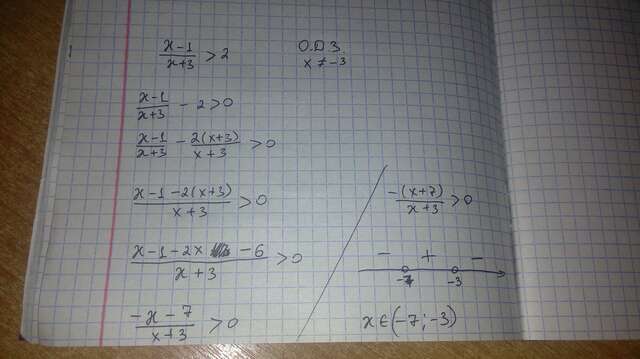 x-1/x+3 > 2
О.Д.З.
x ≠ -3
x-1/x+3 - 2 > 0
x-1/x+3 - 2(x+3)/x+3 > 0
x-1-2(x+3)/x+3 > 0
x-1-2x -6/x+3 > 0
-x-7/x+3 > 0
-(x+7)/x+3 > 0
- + -
-7 -3
x ∈ (-7; -3)